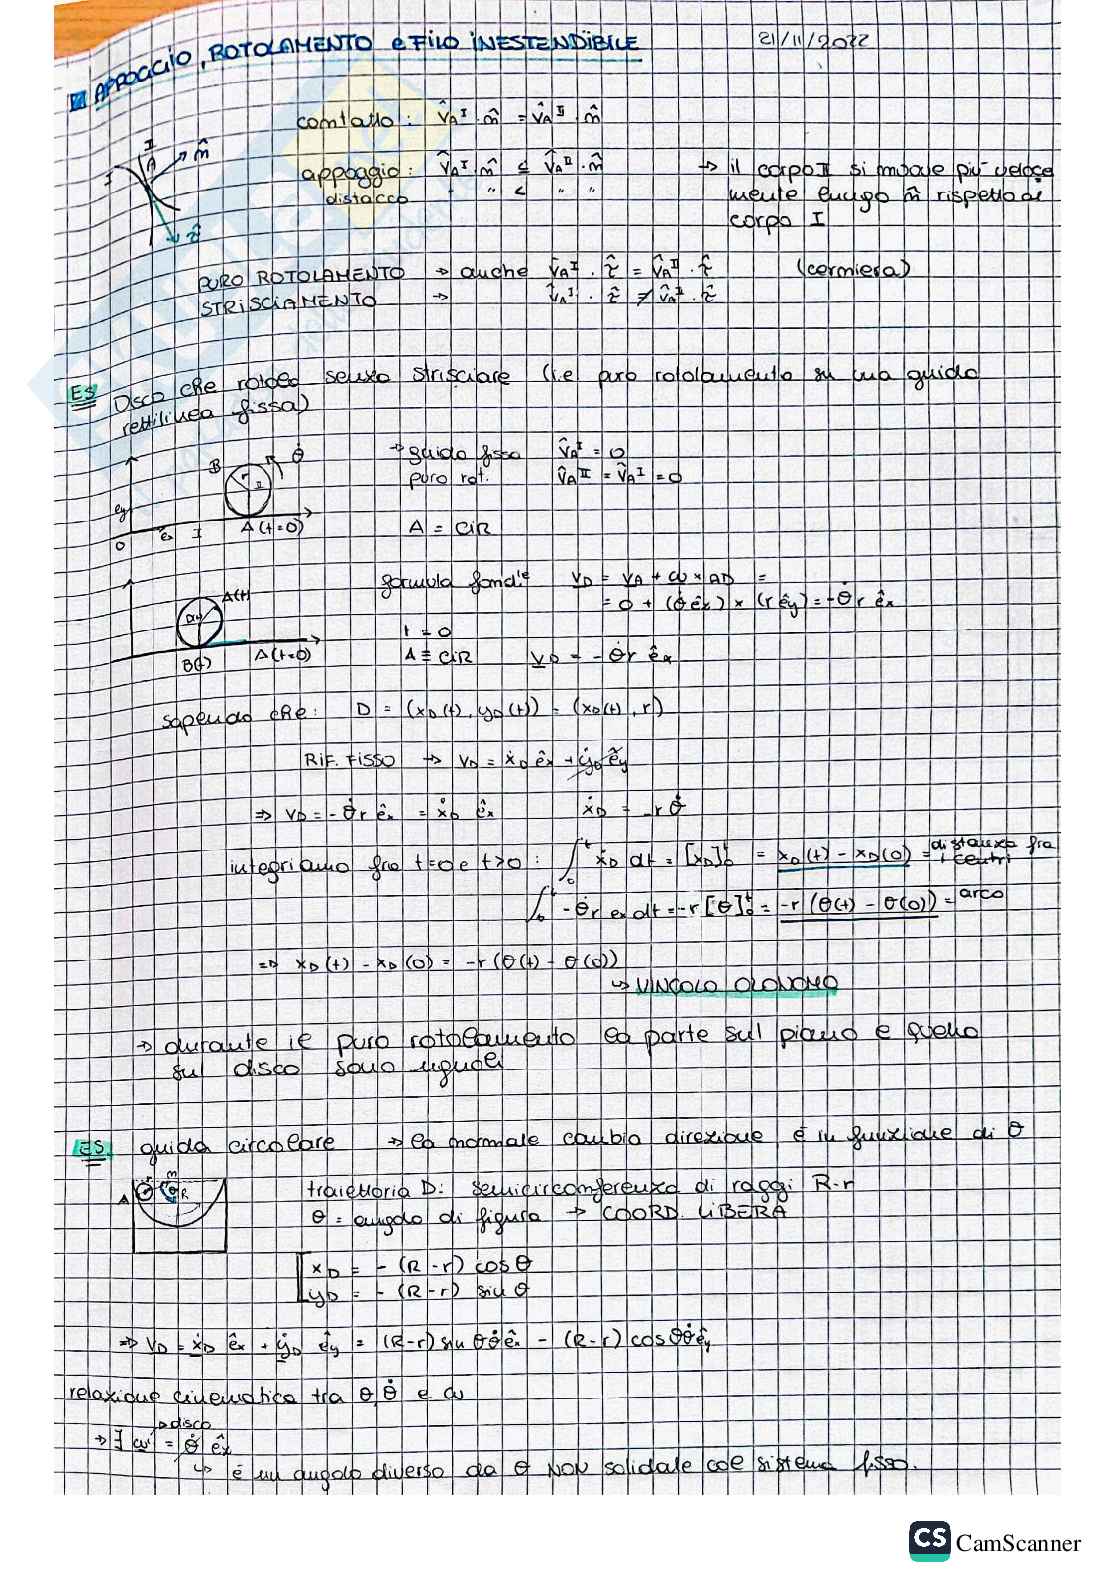 APPOGGIO, ROTOLAMENTO e FILO INESTENDIBILE 21/11/2022
contatto: v̂_A^I · m̂ = v̂_A^II · m̂
appoggio: v̂_A^I · m̂ ≤ v̂_A^II · m̂ → il corpo II si muove più veloce
distacco " " < " " mente lungo m̂ rispetto al
corpo I
I
A
m̂
I
τ̂
PURO ROTOLAMENTO → anche v̂_A^I · τ̂ = v̂_A^II · τ̂ (cerniera)
STRISCIAMENTO → v̂_A^I · τ̂ ≠ v̂_A^II · τ̂
ES Disco che rotola senza strisciare (i.e puro rotolamento su una guida
rettilinea fissa)
B θ̇
r
I
ey
O I A(t=0)
→ guida fissa v̂_A^I = 0
puro rot. v̂_A^II = v̂_A^I = 0
A = CIR
formula fond.le v_D = v_A + ω × AD =
= 0 + (θ̇ ê_z) × (r ê_y) = -θ̇ r ê_x
A(t)
D(t)
B(t) A(t=0)
t = 0
A ≡ CIR v_D = -θ̇ r ê_x
sapendo che: D = (x_D(t), y_D(t)) = (x_D(t), r)
RIF. FISSO → v_D = ẋ_D ê_x + ẏ_D ê_y
⇒ v_D = -θ̇ r ê_x = ẋ_D ê_x ẋ_D = -r θ̇
integriamo fra t=0 e t>0: ∫_0^t ẋ_D dt = [x_D]_0^t = x_D(t) - x_D(0) = distanza fra
i centri
∫_0^t -θ̇ r ex dt = -r [θ]_0^t = -r (θ(t) - θ(0)) = arco
⇒ x_D(t) - x_D(0) = -r (θ(t) - θ(0))
↳ VINCOLO OLONOMO
→ durante il puro rotolamento la parte sul piano e quella
sul disco sono uguali
ES. guida circolare → la normale cambia direzione è in funzione di θ
A m R
traiettoria D: semicirconferenza di raggi R-r
θ = angolo di figura → COORD. LIBERA
x_D = - (R-r) cos θ
y_D = - (R-r) sin θ
⇒ v_D = ẋ_D ê_x + ẏ_D ê_y = (R-r) sin θ θ̇ ê_x - (R-r) cos θ θ̇ ê_y
relazione cinematica tra θ, θ̇ e ω
↱ disco
→ ∃ ω = θ̇ ê_z
↳ è un angolo diverso da θ NON solidale col sistema fisso.
CS CamScanner